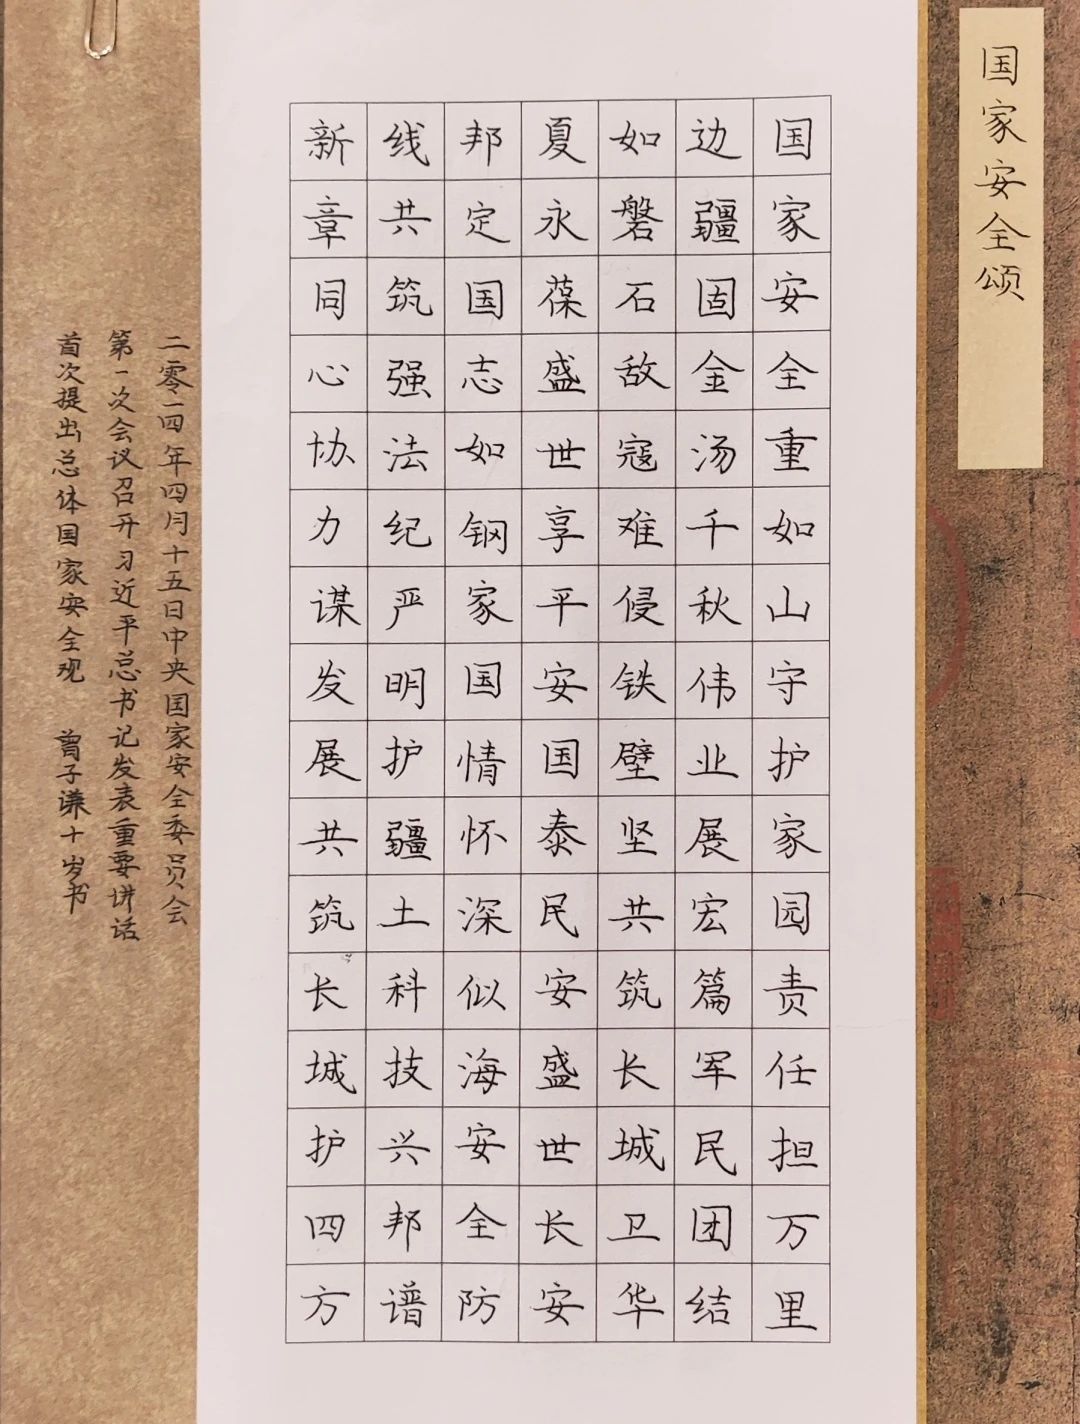 国家安全颂
国家安全重如山守护家园责任担万里
边疆固金汤千秋伟业展宏篇军民团结
如磐石敌寇难侵铁壁坚共筑长城卫华
夏永葆盛世享平安国泰民安盛世长安
邦定国志如钢家国情怀深似海安全防
线共筑强法纪严明护疆土科技兴邦谱
新章同心协力谋发展共筑长城护四方
二零一四年四月十五日中央国家安全委员会
第一次会议召开习近平总书记发表重要讲话
首次提出总体国家安全观 曾子谦十岁书